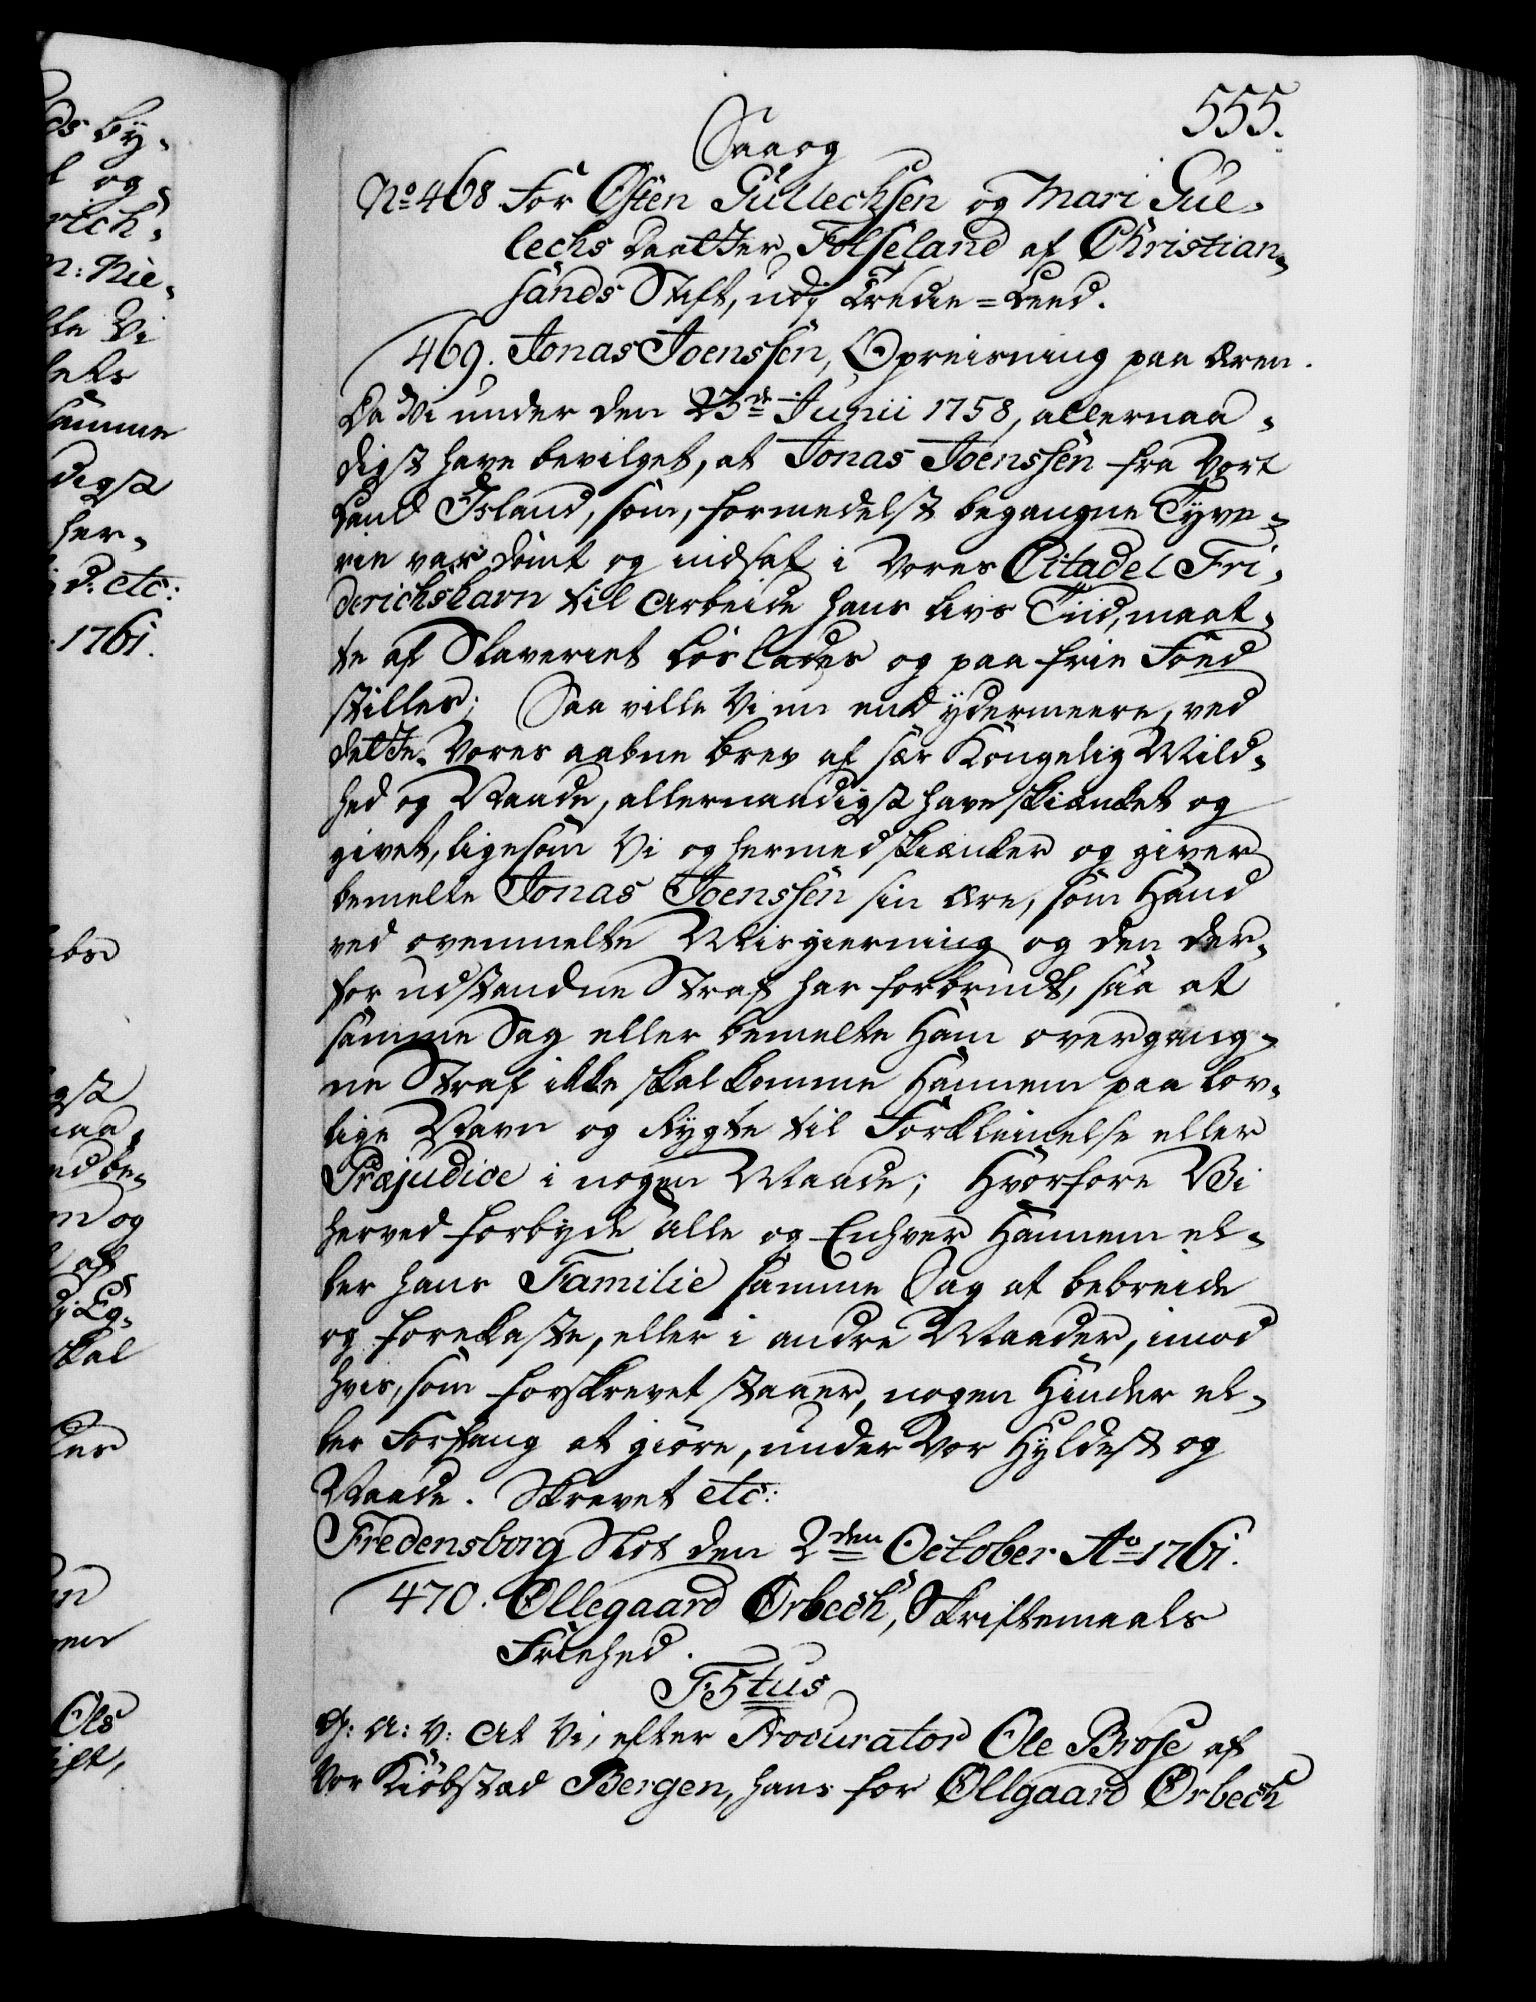 555.
Saa og
No 468 For Østen Gullechsen og Mari Gul-
lechs Daatter Folseland af Christian-
sands Stift, udj Tredie=Leed.
469. Jonas Joenssen, Opreisning paa Æren.
Da Vi under den 23de Junii 1758, allernaa-
digst have bevilget, at Jonas Joenssen fra Vort
Land Island, som, formedelst begangne Tyve-
rie var dömt og indsat i Vores Citadel Fri-
derichshavn til Arbeide hans Livs Tiid, maat-
te af Slaveriet löslades og paa frie Foed
stilles; Saa ville Vi nu end ydermeere, ved
dette Vores aabne Brev af sær Kongelig Mild-
hed og Naade, allernaadigst have skiænket og
givet, ligesom Vi og hermed skiænker og giver
bemelte Jonas Joenssen sin Ære, som Hand
ved ovenmelte Misgierning og den der-
for udstandne Straf har forbrudt, saa at
samme Sag eller bemelte Ham overgang-
ne Straf ikke skal komme Hannem paa lov-
lige Navn og Rygte til Forkleinelse eller
Præjudice i nogen Maade; Hvorfore Vi
herved forbyde alle og Enhver Hannem el-
ler hans Familie samme Sag at bebreide
og forekaste, eller i andre Maader, imod
hvis, som forskrevet staaer, nogen Hinder el-
ler Forfang at giöre, under Vor Hyldest og
Naade. Skrevet etc:
Fredensborg Slot den 2den October Ao 1761.
470. Øllegaard Ørbech, Skriftemaals
Friehed.
F5tus
G: A: V: At Vi, efter Procurator Ole Brose af
Vor Kiöbstad Bergen, hans for Øllgaard Ørbech
ds by-
l og
rich-
n: Nie-
lte Vi
lets
samme
digst
her-
d: etc:
1761.
gst
naa
ed be-
en og
l af
skal
Ols
ift,